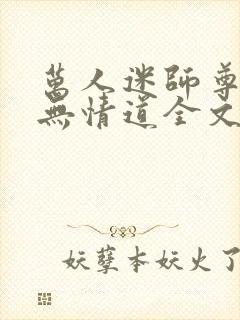 萬人迷師尊
無情道全文
妖孽本妖火了